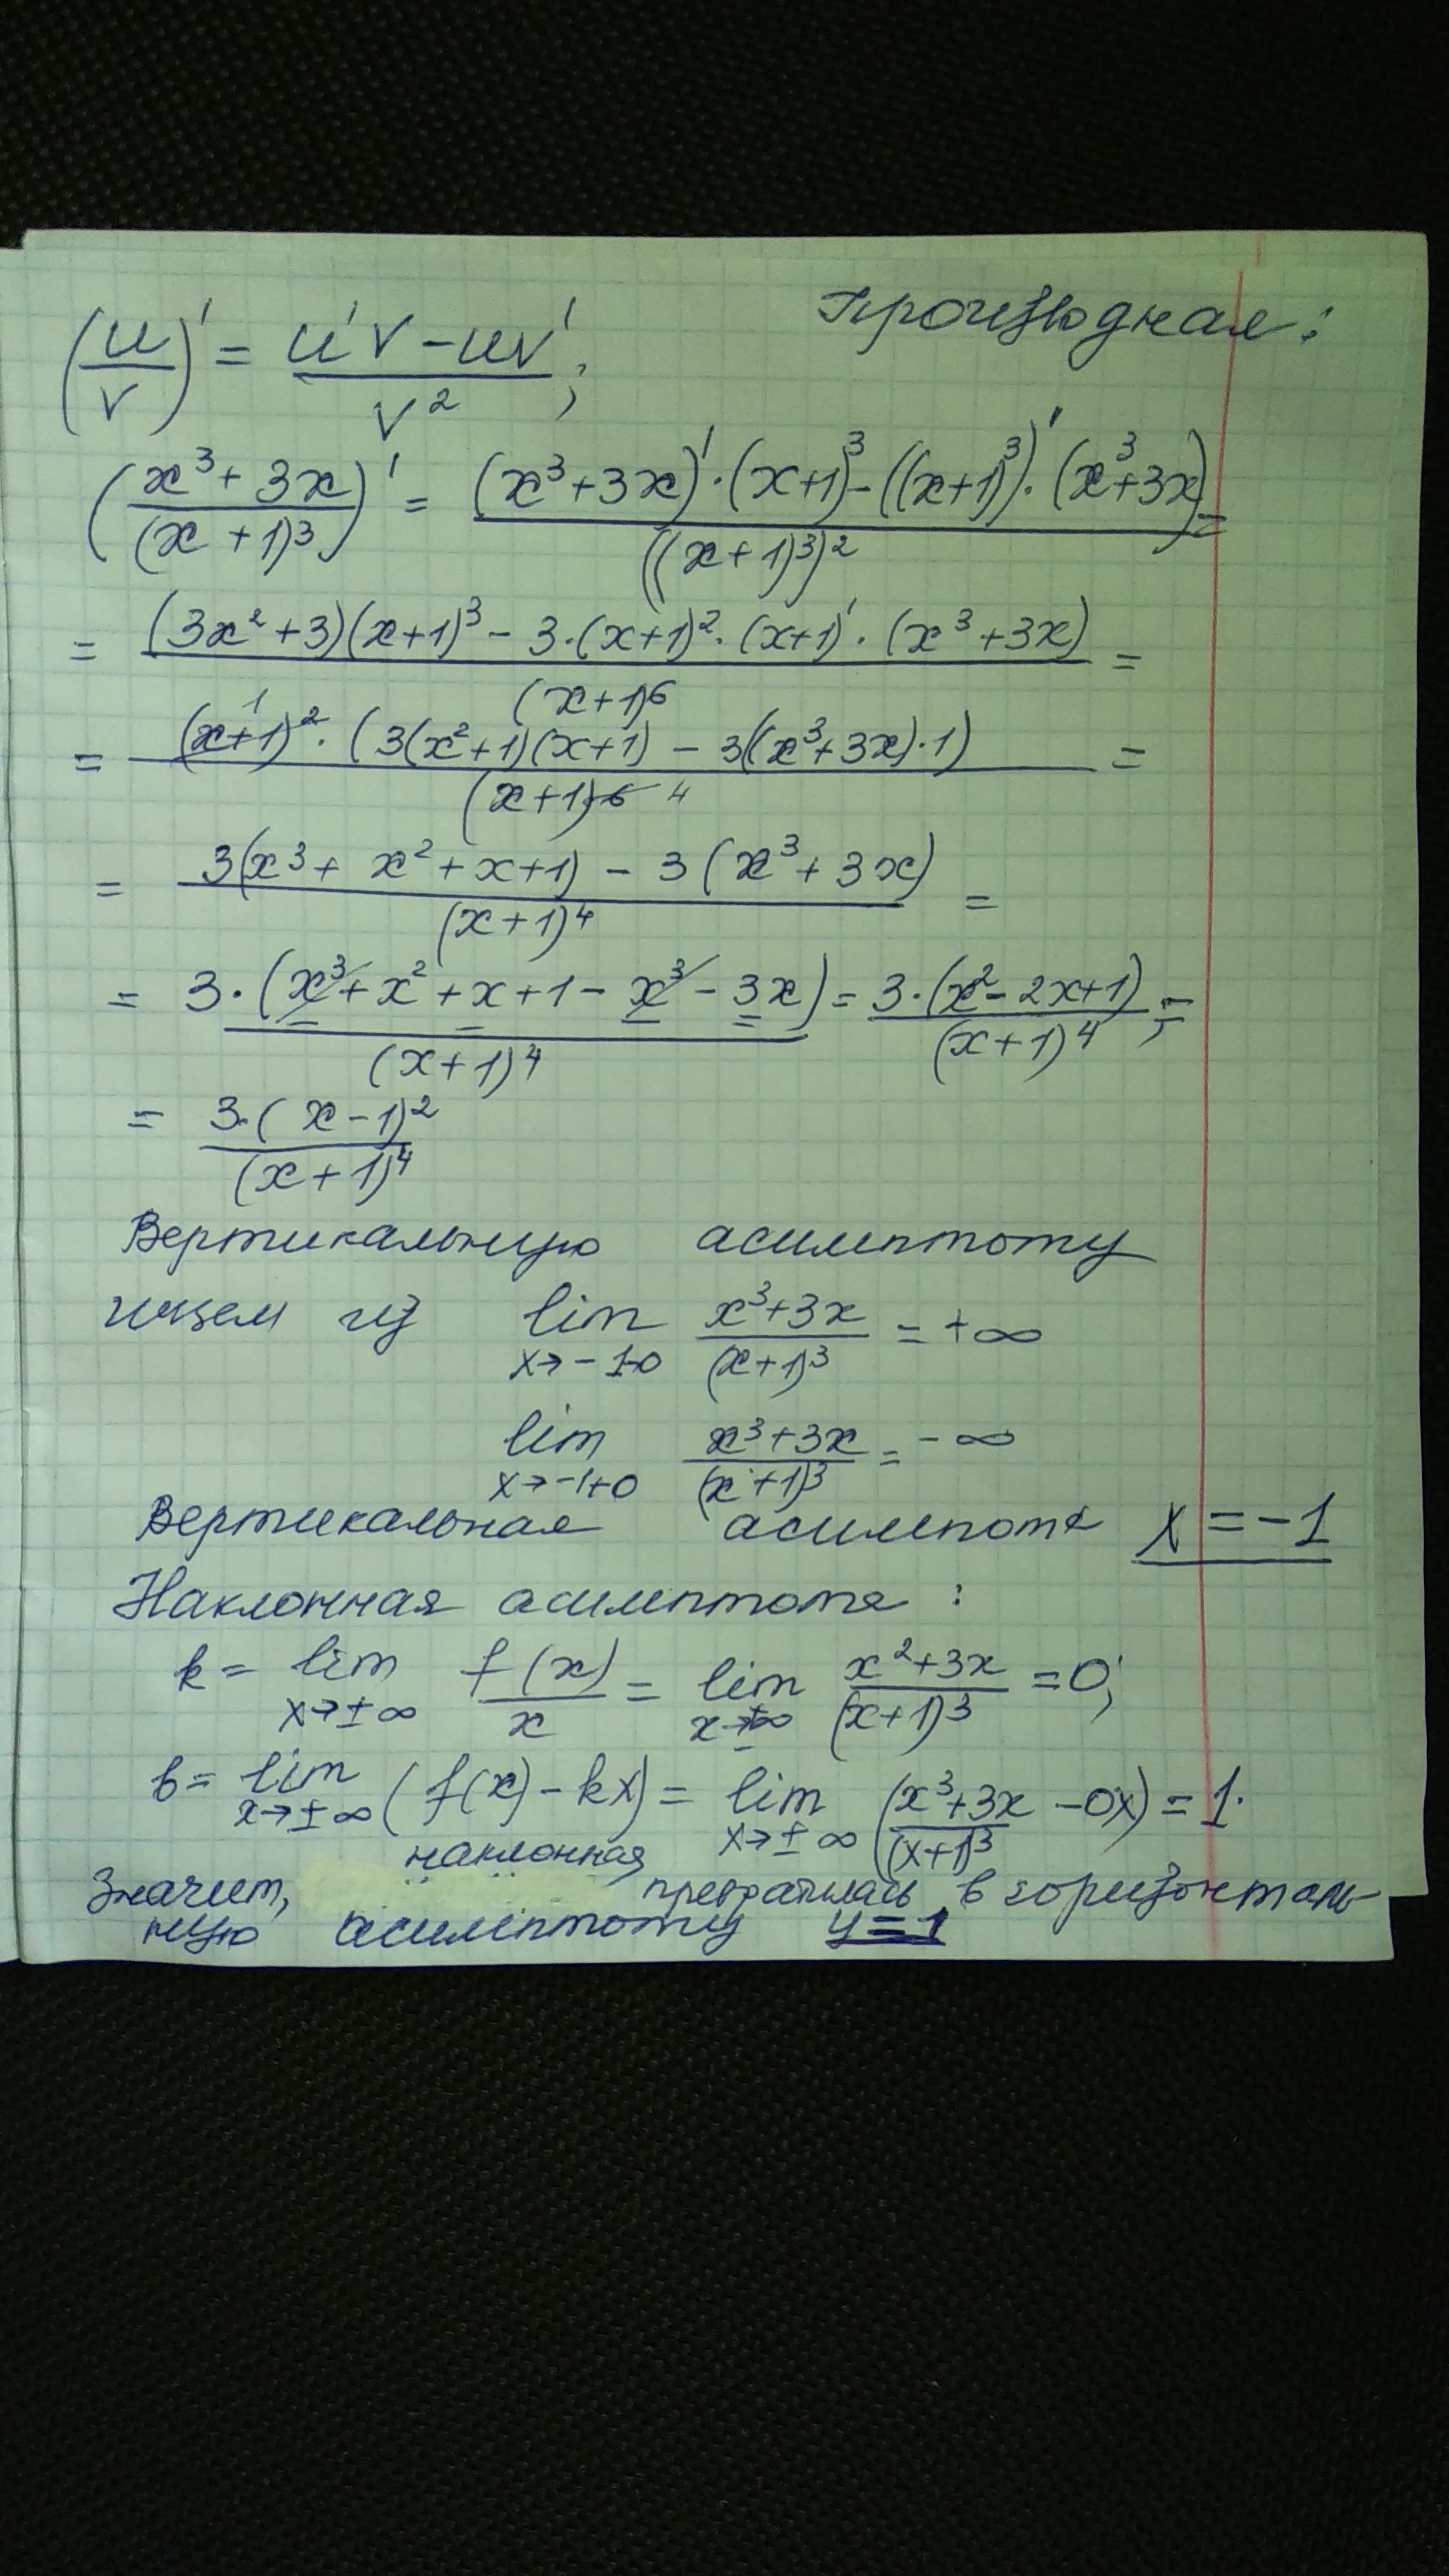 Производная:
(u/v)' = (u'v - uv')/v²;
((x³ + 3x)/(x + 1)³)' = ((x³+3x)'·(x+1)³ - ((x+1)³)'·(x³+3x))/((x+1)³)² =
= ((3x²+3)(x+1)³ - 3·(x+1)²·(x+1)'·(x³+3x))/(x+1)⁶ =
= ((x+1)²·(3(x²+1)(x+1) - 3((x³+3x)·1))/(x+1)⁶ ⁴ =
= (3(x³ + x² + x+1) - 3(x³ + 3x))/(x+1)⁴ =
= 3·(x³ + x² + x + 1 - x³ - 3x)/(x+1)⁴ = 3·(x² - 2x+1)/(x+1)⁴ =
= 3·(x-1)²/(x+1)⁴
Вертикальную асимптоту
ищем из lim x→-1-0 (x³+3x)/(x+1)³ = +∞
lim x→-1+0 (x³+3x)/(x+1)³ = -∞
Вертикальная асимпота x = -1
Наклонная асимптота:
k = lim x→±∞ f(x)/x = lim x→±∞ (x²+3x)/(x+1)³ = 0;
b = lim x→±∞ (f(x) - kx) = lim x→±∞ ((x³+3x)/(x+1)³ - 0x) = 1.
Значит, наклонная превратилась в горизонталь-
ную асимптоту y = 1